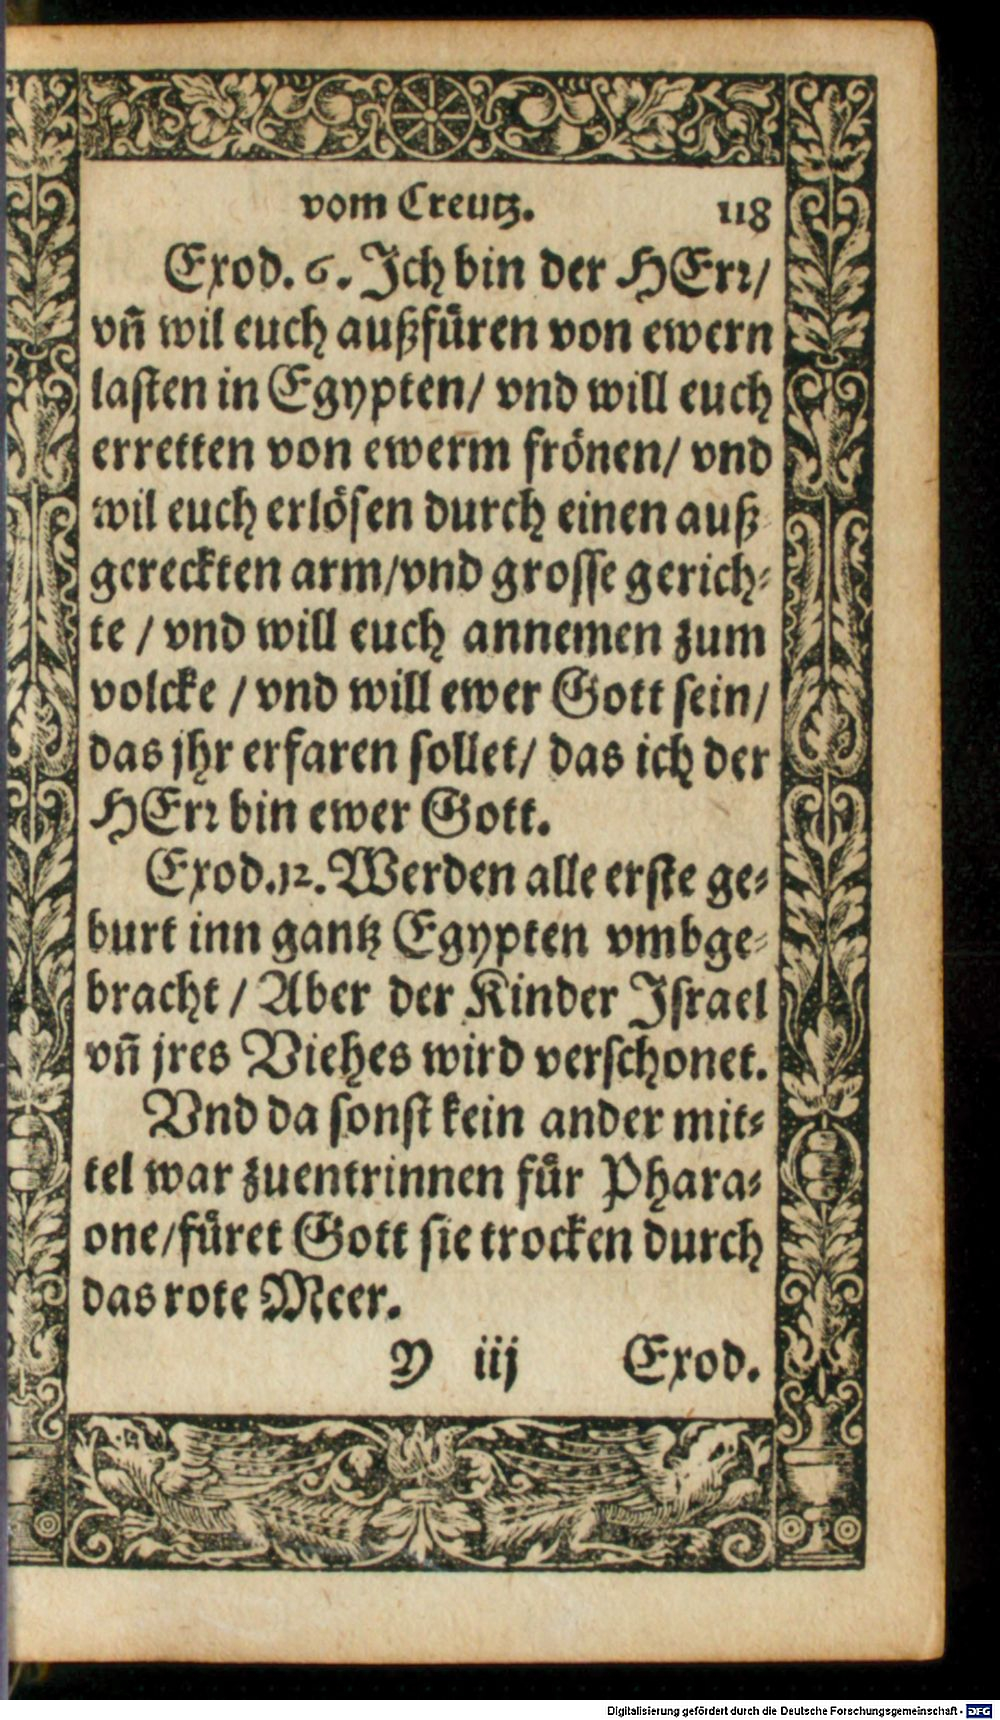 vom Creutz. 118
Exod. 6. Ich bin der HErꝛ/
vn̄ wil euch außfuͤren von ewern
lasten in Egypten/ vnd will euch
erretten von ewerm froͤnen/ vnd
wil euch erloͤsen durch einen auß
gereckten arm/vnd grosse gerich⸗
te / vnd will euch annemen zum
volcke / vnd will ewer Gott sein/
das jhr erfaren sollet/ das ich der
HErꝛ bin ewer Gott.
Exod.12. Werden alle erste ge⸗
burt inn gantz Egypten vmbge⸗
bracht / Aber der Kinder Israel
vn̄ jres Viehes wird verschonet.
Vnd da sonst kein ander mit⸗
tel war zuentrinnen fuͤr Phara⸗
one/fuͤret Gott sie trocken durch
das rote Meer.
Y iij Exod.
Digitalisierung gefördert durch die Deutsche Forschungsgemeinschaft - DFG